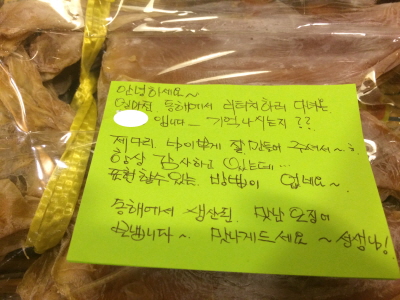 안녕하세요~
얼마전 동해에서 리터치하러 다녀온
입니다_ 기억나시는지??
제다리 낫이쁘게 잘 만들어 주셔서~
항상 감사하고 있는데...
표현할수있는 방법이 없네요~.
동해에서 생산된 맛난 오징어
보냅니다~. 맛나게드세요~ 샘!